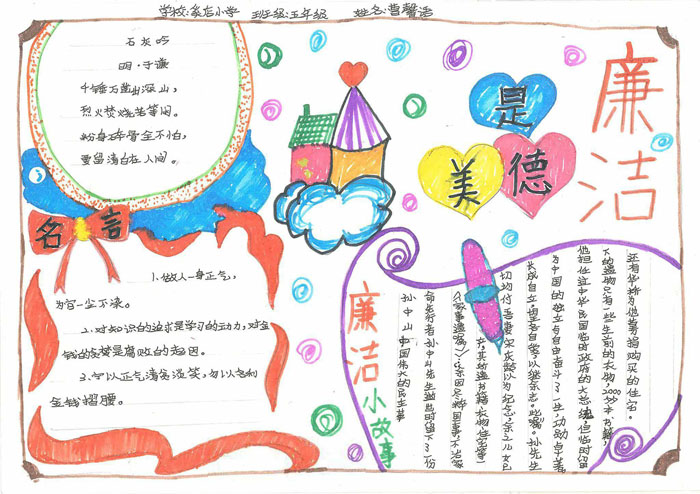 学校:象店小学 班级:五年级 姓名:曹馨语
石灰吟
明·于谦
千锤万凿出深山,
烈火焚烧若等闲。
粉身碎骨全不怕,
要留清白在人间。
名言
1.做人一身正气,
为官一尘不染。
2.对知识的追求是学习的动力,对金
钱的贪婪是腐败的起因。
3.宁以正气清贫淡笑,勿以志向
金钱摺腰。
廉洁
是
美德
廉洁小故事
孙中山,中国伟大的民主革
命先行者孙中山先生逝世时留下了一份
《家事遗嘱》:“余因尽瘁国事,不治家
产,其所遗书籍、衣物、住宅等一
切均付吾妻宋庆龄以为纪念,余之儿女已
长成自立,望各自爱,以继余志。此嘱。”孙先生
为中国的独立与自由奋斗了一生,功勋卓著,
他担任过中华民国临时政府的大总统,但临终留
下的遗物只有一些生前的衣物,2000多本书籍,
还有华侨为他募捐购买的住宅。